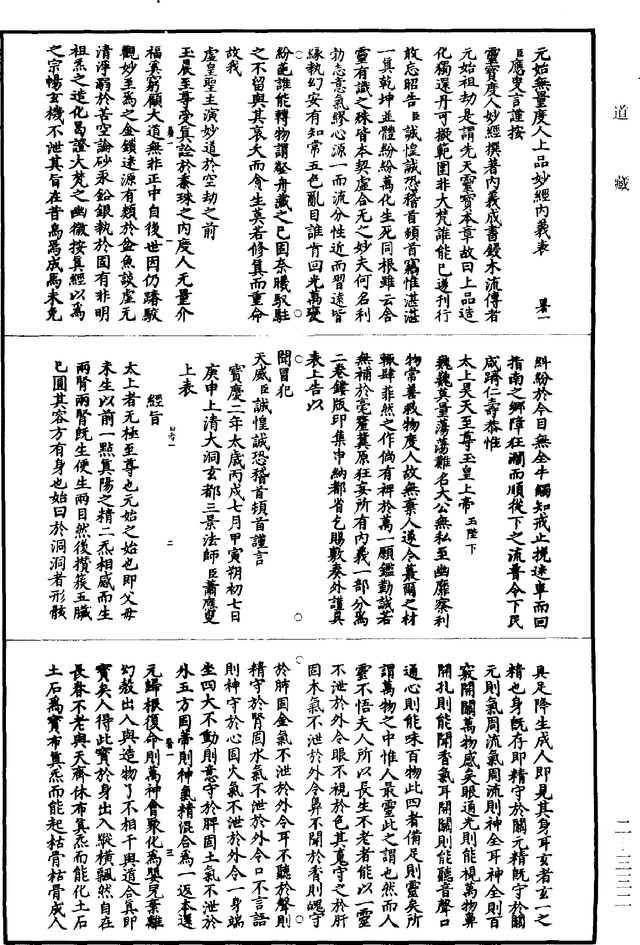 道藏
元始無量度人上品妙經內義表 暑一
臣應叟言謹按
靈寶度人妙經撰著內義成書鋟木流傳者
元始祖劫是謂先天靈寶本章故曰上品造
化獨還丹可擬範圍非大梵誰能已遂刊行
敢忘昭告臣誠惶誠恐稽首頓首竊惟湛湛
一真乾坤並體紛紛萬化生死同根雖云含
靈有識之殊皆本契虛合无之妙夫何名利
勃志意氣繆心源一而流分性近而習遠皆
緣執幻妄有知常五色亂目誰肯回光萬變
紛葩誰能轉物謂壑舟藏之已固奈曦馭駐
之不留與其哀夭而貪生莫若修真而重命
故我
虛皇聖主演妙道於空劫之前
玉晨至尊受真詮於黍珠之內度人无量介
福奚窮顧大道無非正中自後世因仍踳駁
觀妙至為之金鎖迷源有類於盆魚談虛无
清淨溺於苦空論砂汞鉛銀執於固有非明
祖炁之造化曷證大梵之幽微按真經以為
之宗暢玄機不泄其旨在昔為爲成爲未免
糾紛於今日無全牛觸知戒止攪迷車而回
指南之鄉障狂瀾而順從下之流普令下民
咸躋仁壽恭惟
太上昊天至尊玉皇上帝玉陛下
巍巍莫量蕩蕩難名大公無私至幽靡察利
物常善救物度人故無棄人遂令蕞爾之材
輒肆非然之作倘有裨於萬一願鑑勤誠若
無補於毫釐冀原狂妄所有內義一部分為
二卷鏤版印集申納都省乞賜敷奏外謹具
表上告以
聞冒犯
天威臣誠惶誠恐稽首頓首謹言
寶慶二年太歲丙戌七月甲寅朔初七日
庚申上清大洞玄都三景法師臣蕭應叟
上表
經旨
太上者无極至尊也元始之始也即父母
未生以前一點真陽之精二炁相感而生
兩腎兩腎既生便生兩目然後攢簇五臟
已圓其容方有身也始曰於洞洞者形骸
具足降生成人即見其身耳玄者玄一之
精也身既存即精守於關元精既守於關
元則氣周流氣周流則神全耳神全則百
竅開關萬物感矣眼通光則能視萬物鼻
開孔則能聞香氣耳開關則能聽音聲口
通心則能味百物此四者備足則靈矣所
謂萬物之中惟人最靈此之謂也然而人
靈不悟夫人所以長生不老者能以一靈
不泄於外令眼不視於色其䰟守之於肝
因木氣不泄於外令鼻不聞於香則魄守
於肺因金氣不泄於外令耳不聽於聲則
精守於腎因水氣不泄於外令口不言語
則神守於心因火氣不泄於外令一身端
坐四大不動則意守於脾因土氣不泄於
外五方固蒂則神氣精混合為一返本還
元歸根復命則萬神會聚化為嬰兒棄離
幻殼出入與造物了不相干與道合真即
寶矣人得此寶於身出入縱橫飄然自在
長春不老與天齊休布真炁而能化土石
土石為寶布真炁而能起枯骨枯骨成人
二-三三二